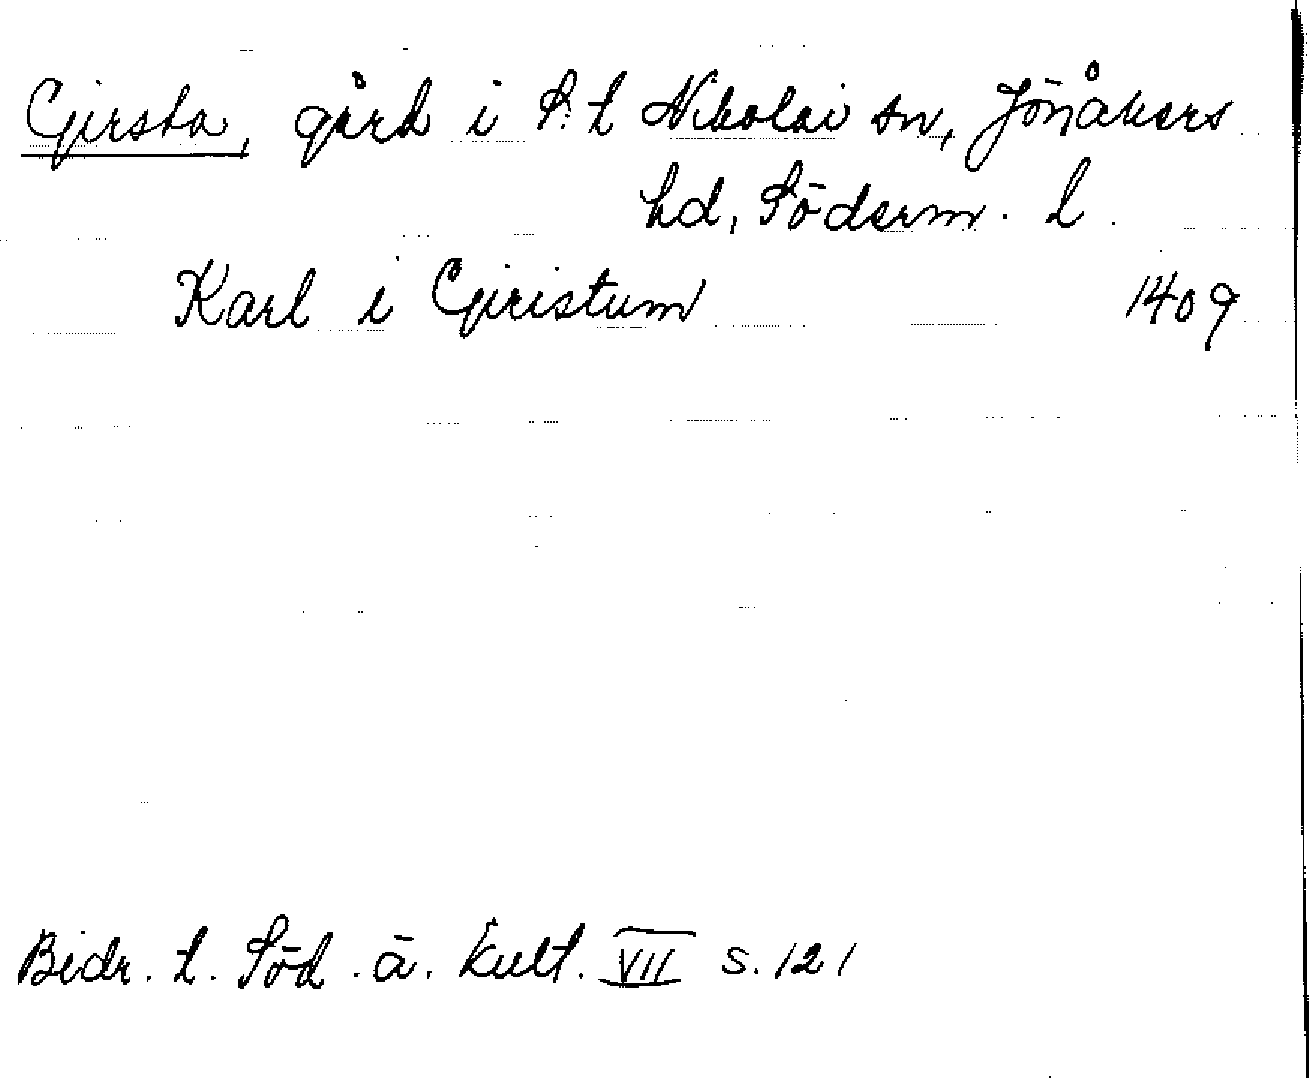 Girsta, gård i S:t Nikolai sn, Jönåkers
hd, Söderm. l.
Karl i Giristum 1409
Bidr. t. Söd. ä. kult. VII s. 121